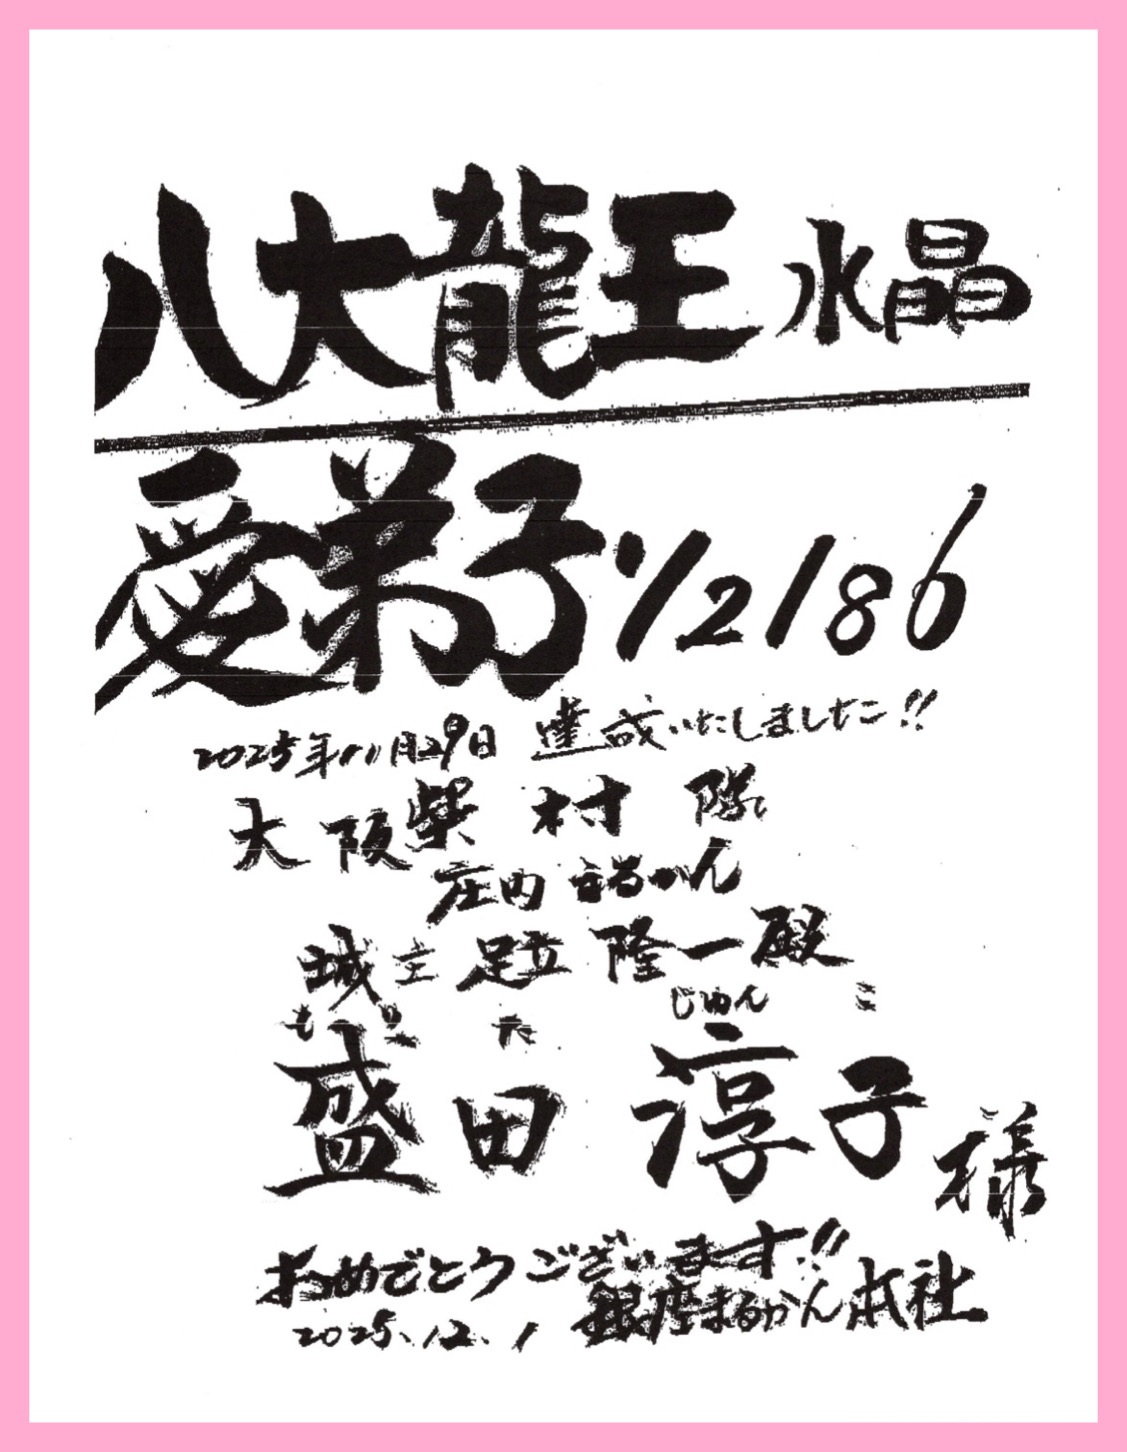 八大龍王 水晶
愛弟子 1/2186
2025年11月29日 達成いたしました!!
大阪柴村隊
庄内まるかん
城主 足立 隆一殿
もりた じゅんこ
盛田 淳子様
おめでとうございます!!
2025.12.1 銀座まるかん本社